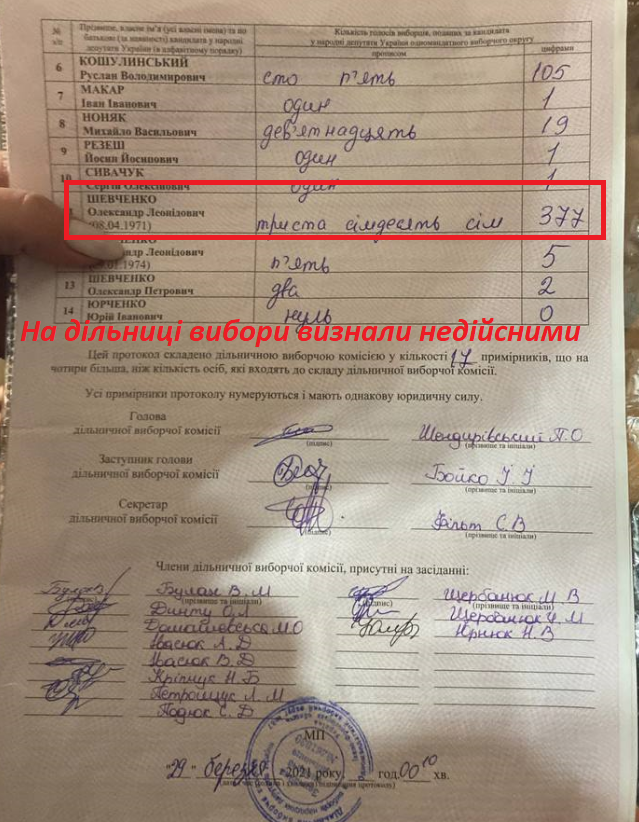 №
з/п
Прізвище, власне ім'я (усі власні імена) та по батькові (за наявності) кандидата у народні депутати України (в алфавітному порядку)
Кількість голосів виборців, поданих за кандидата
у народні депутати України одномандатного виборчого округу
прописом
цифрами
6 КОШУЛИНСЬКИЙ
Руслан Володимирович сто п'ять 105
7 МАКАР
Іван Іванович один 1
8 НОНЯК
Михайло Васильович дев'ятнадцять 19
9 РЕЗЕШ
Йосип Йосипович один 1
10 СИВАЧУК
Сергій Олексійович один 1
ШЕВЧЕНКО
Олександр Леонідович
(08.04.1971) триста сімдесять сім 377
Леонідович
1974) п'ять 5
13 ШЕВЧЕНКО
Олександр Петрович два 2
14 ЮРЧЕНКО
Юрій Іванович нуль 0
На дільниці вибори визнали недійсними
Цей протокол складено дільничною виборчою комісією у кількості 17 примірників, що на
чотири більша, ніж кількість осіб, які входять до складу дільничної виборчої комісії.
Усі примірники протоколу нумеруються і мають однакову юридичну силу.
Голова
дільничної виборчої комісії П.О
(підпис) (прізвище та ініціали)
Заступник голови
дільничної виборчої комісії Бойко
(підпис) (прізвище та ініціали)
Секретар
дільничної виборчої комісії Фільт С.В
(підпис) (прізвище та ініціали)
Члени дільничної виборчої комісії, присутні на засіданні:
Булак В.М Щербанюк М.В
(підпис) (прізвище та ініціали) (підпис) (прізвище та ініціали)
О.М Щербанюк М
М.О Н.В
Івасюк Л.Д
Івасюк В.Д
Кріпчук Н.Б
Петрощук Л.М
Подюк С.Д
МП
"29" березня 2021 року, год. 00 10 хв.